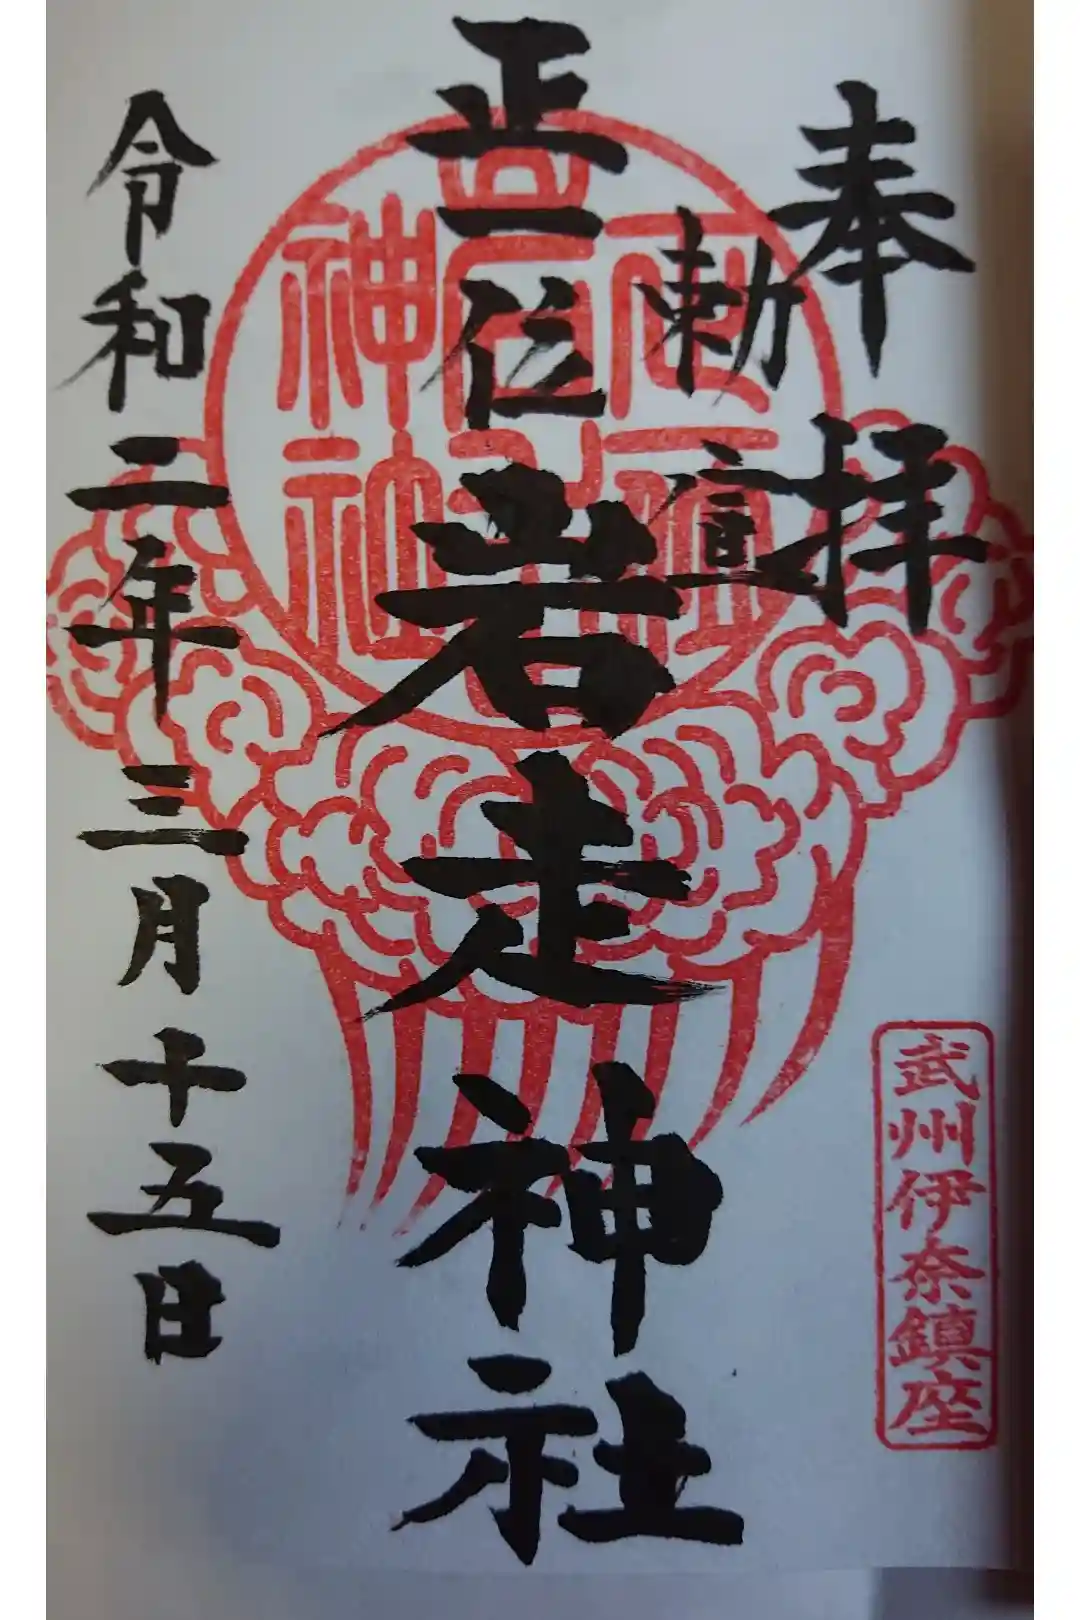 奉拝
勅宣
正一位岩走神社
令和二年三月十五日
武州伊奈鎮座